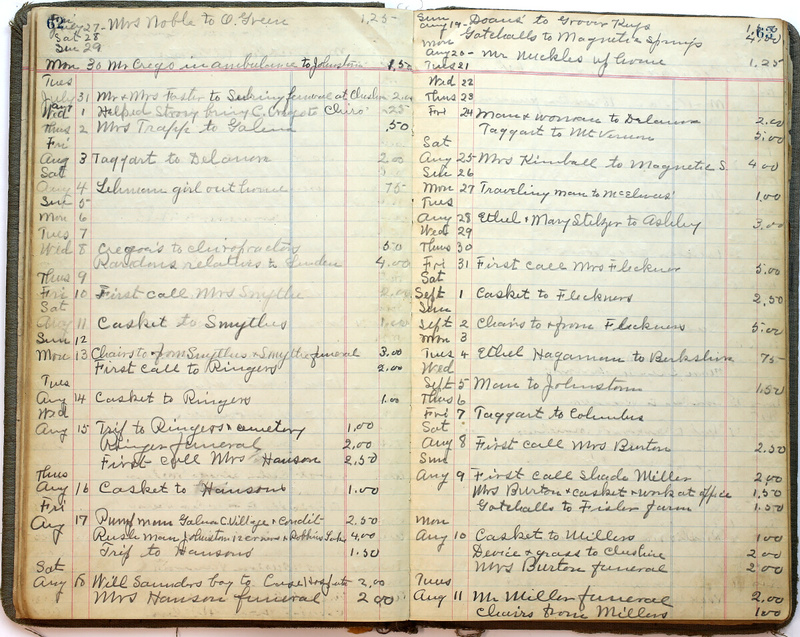 62
July 27- Mrs Noble to O. Green 1,25-
Sat 28
Sun 29
Mon 30 Mr Crego in ambulance to Johnstown 1,50
Tues
July 31 Mr & Mrs Foster to Sebring funeral at Cheshire 2,00
Wed 1 Helped Strong bring C. Crego to Chiro' .25
Thus 2 Mrs Trapp to Galena .50
Fri
Aug 3 Taggart to Delanon 2.00
Sat
Aug 4 Lehman girl out home 75-
Sun 5
Mon 6
Tues 7
Wed 8 Crego's to chiropractors 50
relatives to Linden 4.00
Thus 9
Fri 10 First call Mrs Smythe
Sat
Aug 11 Casket to Smythes 1.00
Sun 12
Mon 13 Chairs to & from Smythes & Smythe funeral 3.00
First call to Ringers 2.00
Tues
Aug 14 Casket to Ringers 1.00
Wed
Aug 15 Trip to Ringers & cemetery 1.00
Ringer funeral 2.00
First call Mrs Hanson 2,50
Thus
Aug 16 Casket to Hansons 1.00
Fri
Aug 17 Pump man Galena C. Village & Condit 2.50
Rush man Johnston 12 corners & Robbins 4,00
Trip to Hansons 1.50
Sat
Aug 18 Will Saunders boy to 2,00
Mrs Hanson funeral 2 00
63
Sun
Aug 19- Doans' to Grover Keys
Gatchalls to Magnetic Springs 4,50
Mon
Aug 20- Mr Nuckles up home 1.25
Tues 21
Wed 22
Thus 23
Fri 24 Man & woman to Delanon 2.00
Taggart to Mt Vernon 5.00
Sat
Aug 25 Mrs Kimball to Magnetic S. 4 00
Sun 26
Mon 27 Traveling man to McElwees' 1.00
Tues
Aug 28 Ethel & Mary Stelzer to Ashley 3.00
Wed 29
Thus 30
Fri 31 First call Mrs Fleckner 5.00
Sat
Sept 1 Casket to Fleckners 2,50
Sun
Sept 2 Chairs to & from Fleckners 5.00
Mon 3
Tues 4 Ethel Hagaman to Berkshire 75-
Wed
Sept 5 Man to Johnstown 1,50
Thus 6
Fri 7 Taggart to Columbus
Sat
Aug 8 First call Mrs Burton 2.50
Sun
Aug 9 First call Shade Miller 2 00
Mrs Burton & casket & work at office 1.50
Gatchalls to Fisler farm 1.50
Mon
Aug 10 Casket to Millers 1 00
Device & grass to Cheshire 2 00
Mrs Burton funeral 2 00
Tues
Aug 11 Mr Miller funeral 2.00
Chairs from Millers 1 00